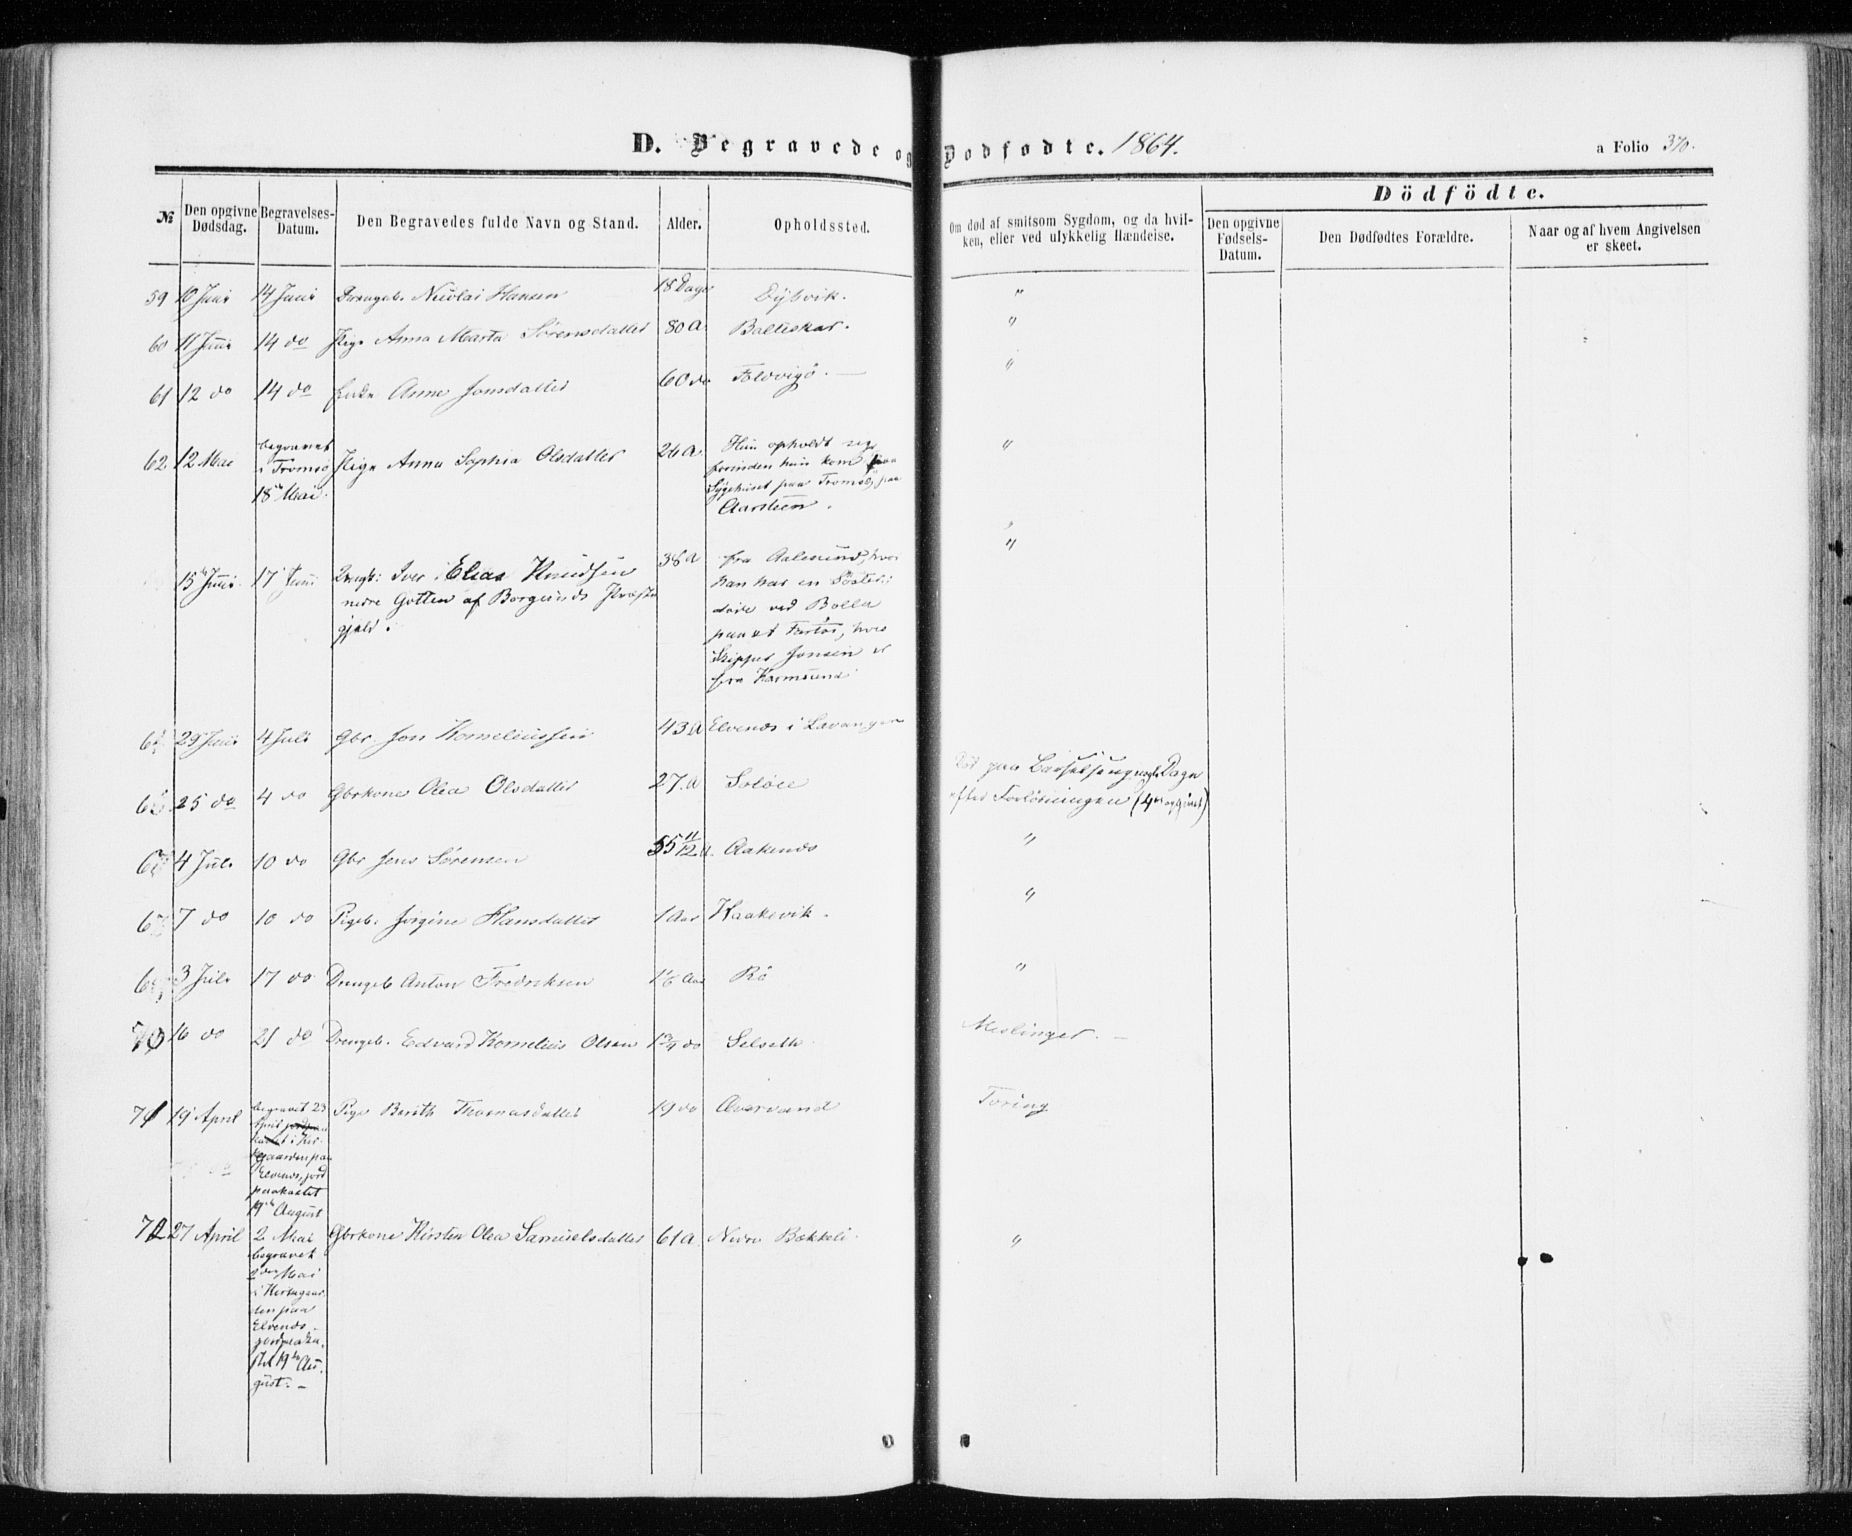 D. Begravede og Dödfödte. 1864.
a Folio 370.
Dödfödte.
№
Den opgivne Dødsdag.
Begravelses-Datum.
Den Begravedes fulde Navn og Stand.
Alder.
Opholdssted.
Om død af smitsom Sygdom, og da hvil-
ken, eller ved ulykkelig Hændelse.
Den opgivne Fødsels-Datum.
Den Dødfødtes Forældre.
Naar og af hvem Angivelsen er skeet.
59 10 Juni 14 Juni Drengeb. Nicolai Hansen 18 Dage Dybvik. "
60 11 Juni 14 do Pige Anna Marta Sørensdatter 80 A. Balteskar. "
61 12 do 14 do Enke Anne Jonsdatter 60 do Foldvigö. "
62. 12 Mai begravet i Tromsø 18de Mai. Pige Anna Sophia Olsdatter 26 A. "
Hun opholdt sig
forinden hun kom paa
Sygehuset paa Tromsø, paa
Aarsteen.
15de Juni. 17 Juni Iver Elias Knudsen 38 A "
nedre Gotten af Borgunds Præste
gjeld.
fra Aalesund, hvor
han har en Søster;
døde ved Bolla
paa et Fartøi, hvis
Skipper Jonsen er
fra Karmsund
29 Juni 4 Juli Gbr Jon Korneliussen 43 A Elvenes i Lavangen
25 do 4 do Gbrkone Olea Olsdatter 27. A Soløie
Död paa Barselseng nogle Dage
efter Forløsningen
4 Juli 10 do Gbr Jens Sørensen 55 11/12 A. Aakenes "
7 do 10 do Pigeb. Jørgine Hansdatter 1 Aar Haakevik. "
3 Juli 17 do Drengeb Anton Fredriksen Rö "
70 16 do 21 do Drengeb. Edvard Kornelius Olsen Selseth. Meslinger.
71 19 April Pige Berith Thomasdatter 19 do Øvervand Tæring
begravet 23
April
gaarden paa
Elvenes, jord
paakastet
19de August
72 27 April 2 Mai Gbrkone Kirsten Olea Samuelsdatter 61 A. Nedre Bækkeli "
begravet
2den Mai
i Kirkegaar-
den paa
Elvenes
jordpaaka-
stet 19de Au-
gust.